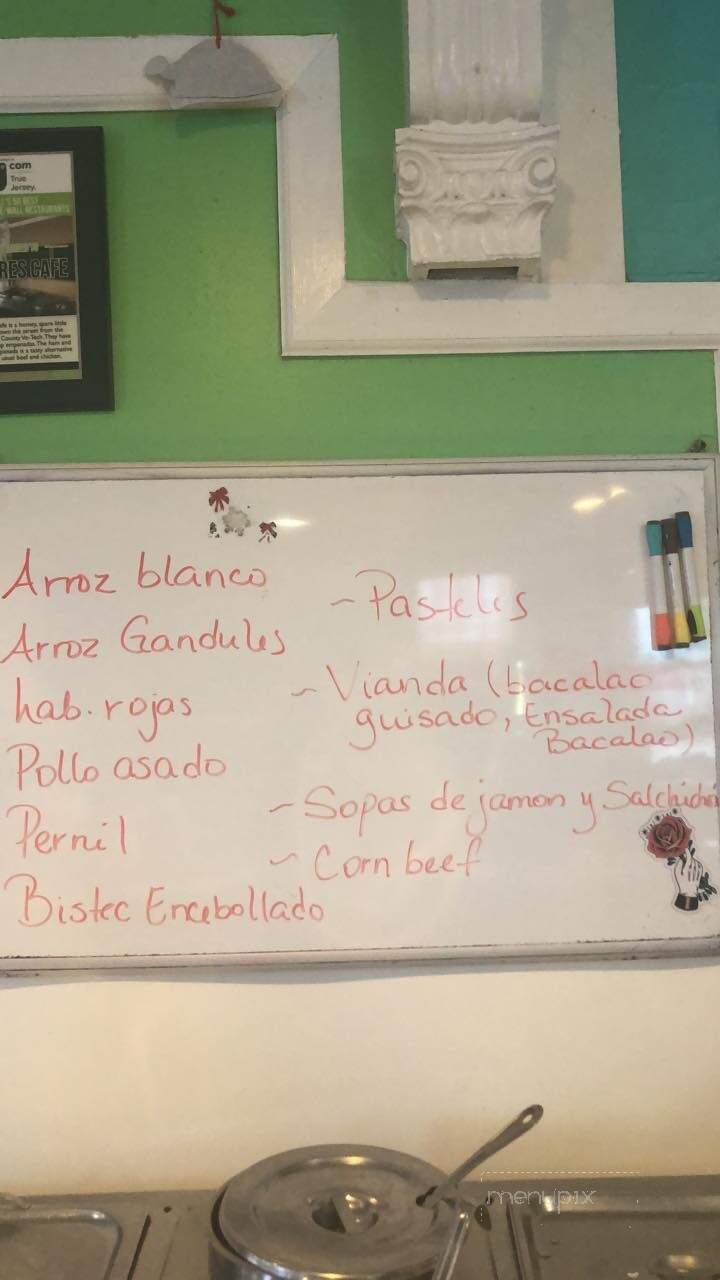 com
True
Jersey.
RES CAFE
Arroz blanco
Arroz Gandules
hab. rojas
Pollo asado
Pernil
Bistec Encebollado
~ Pasteles
~ Vianda (bacalao
guisado, Ensalada
Bacalao)
~ Sopas de jamon y
~ Corn beef
menupix